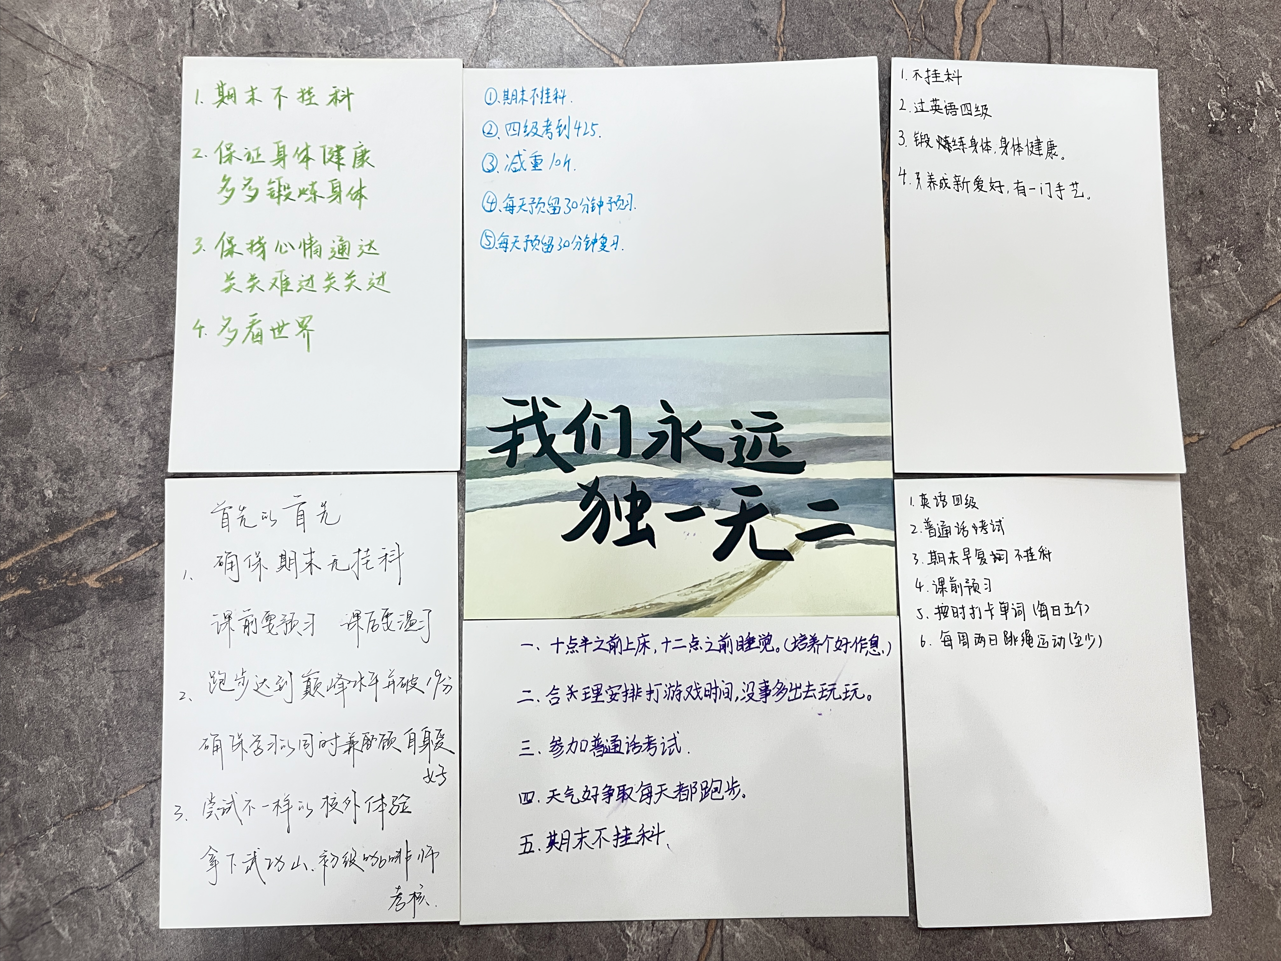 1. 期末不挂科
2. 保证身体健康
多多锻炼身体
3. 保持心情通达
关关难过关关过
4. 多看世界
①期末不挂科.
②四级考到425.
③减重10斤.
④每天预留30分钟预习.
⑤每天预留30分钟复习.
1. 不挂科
2. 过英语四级
3. 锻炼身体,身体健康。
4. 养成新爱好,有一门手艺。
我们永远
独一无二
首先的首先
1. 确保期末无挂科
课前要预习 课后要温习
2. 跑步达到巅峰水平并破
确保学习的同时兼顾自身爱
好
3. 尝试不一样的校外体验
拿下武功山、初级咖啡师
考核.
一、十点半之前上床,十二点之前睡觉。(培养个好作息.)
二、合理安排打游戏时间,没事多出去玩玩。
三、参加普通话考试.
四、天气好争取每天都跑步。
五、期末不挂科.
1. 英语四级
2. 普通话考试
3. 期末早复习 不挂科
4. 课前预习
5. 按时打卡单词(每日五个)
6. 每周两日跳绳运动(至少)